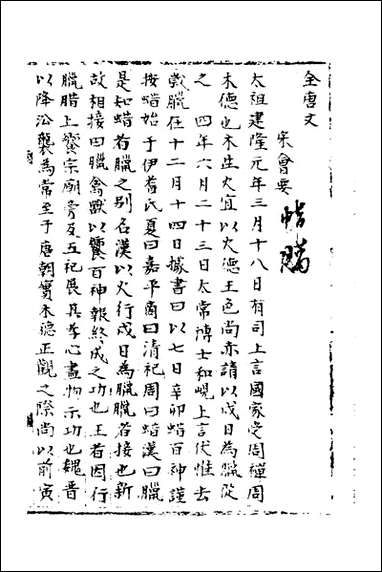 全唐文
宋會要
蜡臘
太祖建隆元年三月十八日有司上言國家受周禪周
木德也木生火宜以火德王色尚赤請以戌日為臘從
之 四年六月二十三日太常博士和峴上言伏惟去
歲臘在十二月十四日據書曰以七日辛卯蜡百神謹
按蜡始于伊耆氏夏曰嘉平商曰清祀周曰蜡漢曰臘
是知蜡者臘之別名漢以火行戌日為臘臘者接也新
故相接田臘禽獸以饗百神報終成之功也王者因行
臘腊上饗宗廟旁及五祀展其孝心盡物示功也魏晉
以降沿襲為常至于唐朝實木德正觀之際尚以前寅